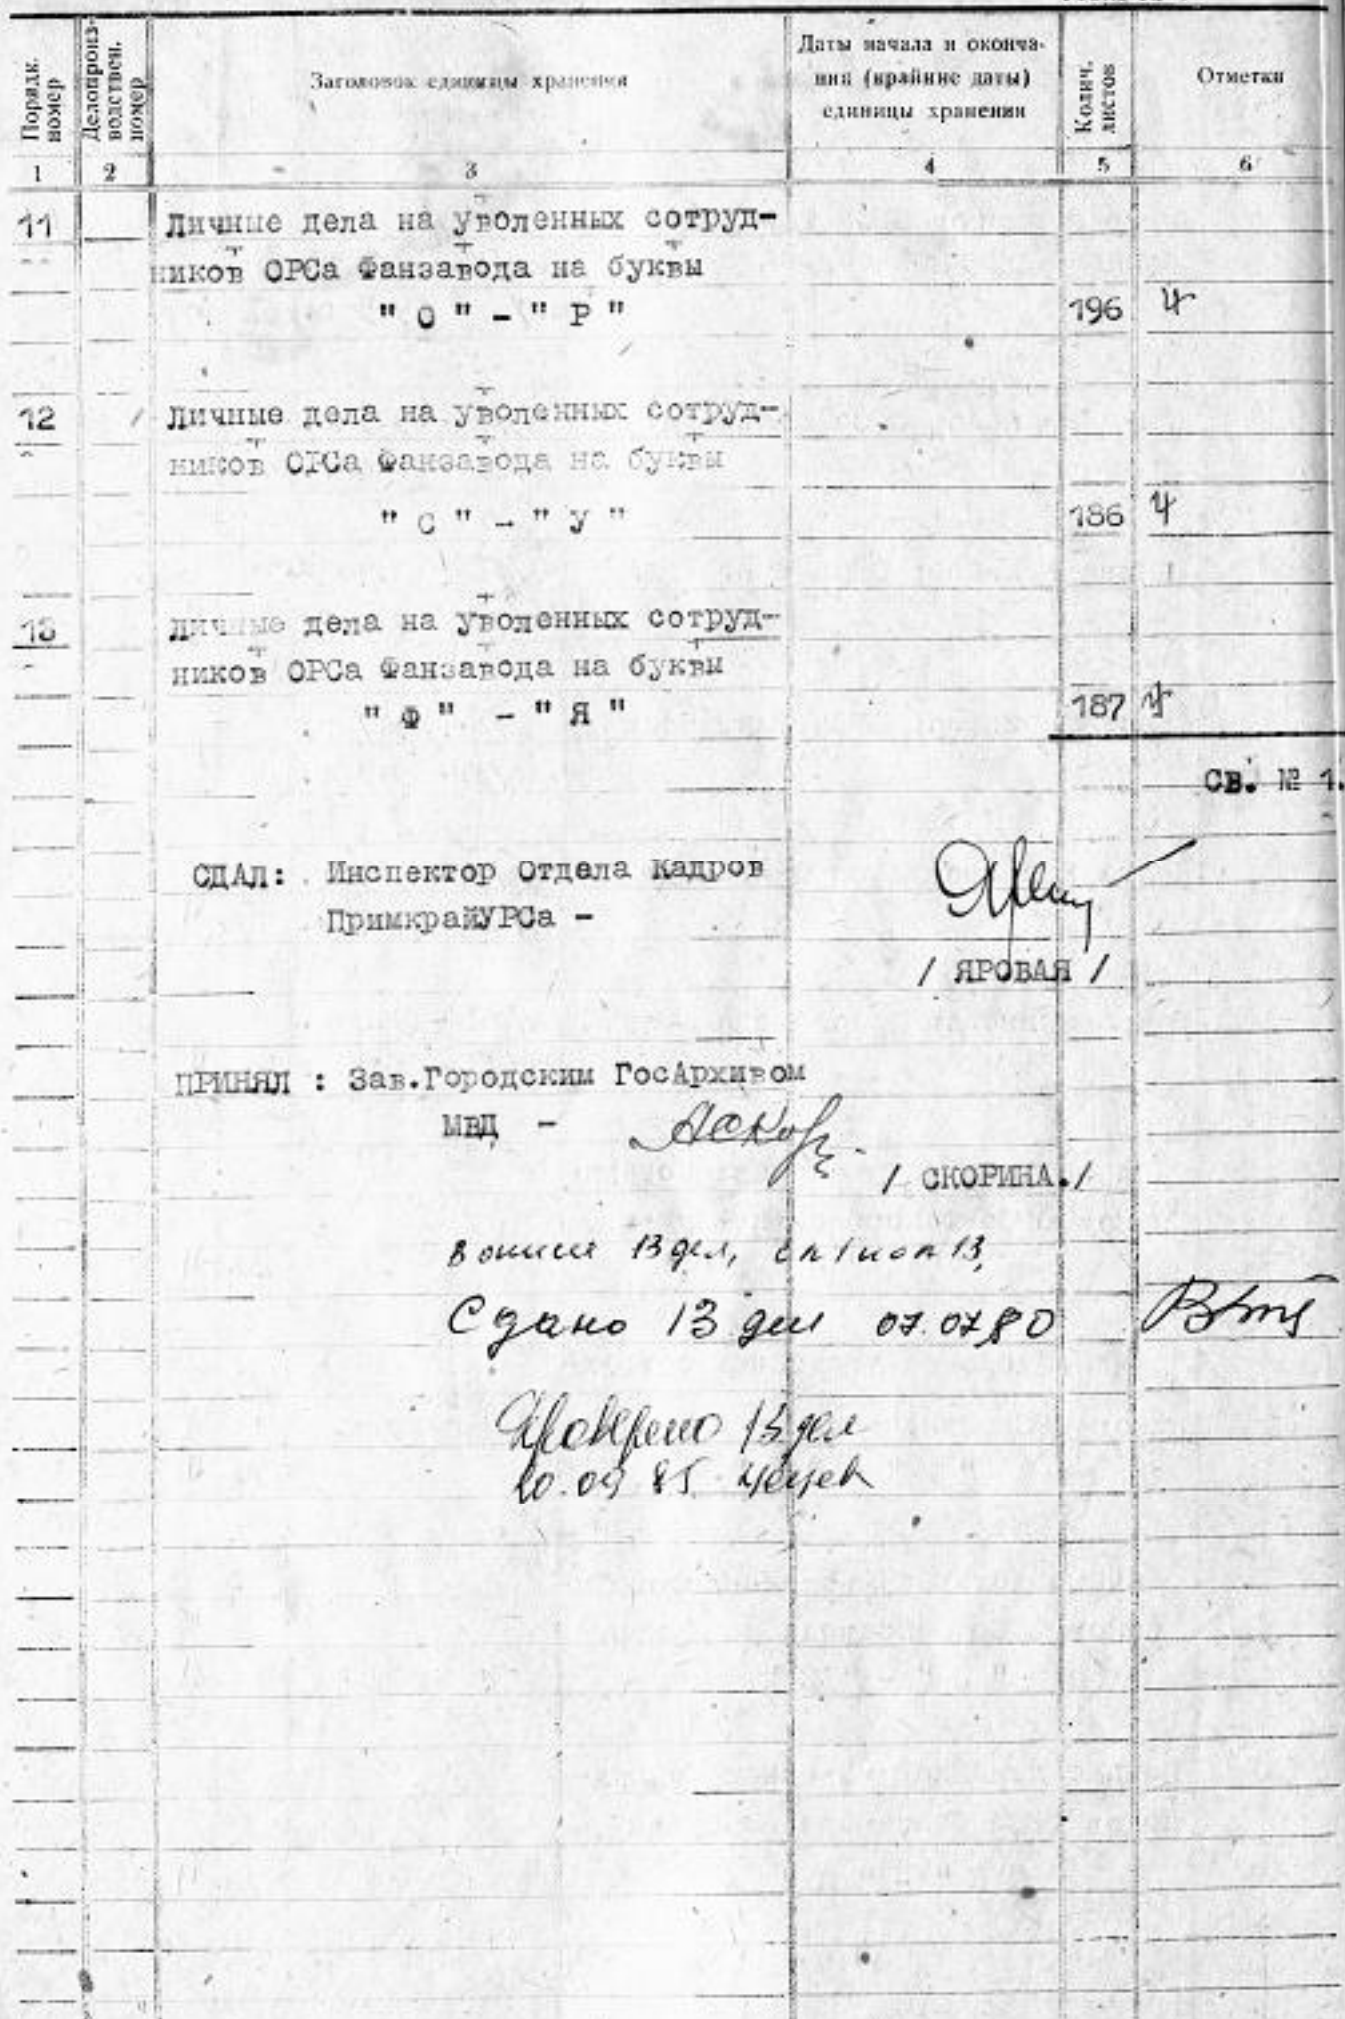 Порядк. номер
Делопроиз-
водствен.
номер
Заголовок единицы хранения
Даты начала и оконча-
ния (крайние даты)
единицы хранения
Колич.
листов
Отметки
1 2 3 4 5 6
11 Личные дела на уволенных сотруд-
ников ОРСа Фанзавода на буквы
" О " - " Р " 196 ч
12 Личные дела на уволенных сотруд-
ников ОРСа Фанзавода на буквы
" С " - " У " 186 ч
13 Личные дела на уволенных сотруд-
ников ОРСа Фанзавода на буквы
" Ф " - " Я " 187 ч
СВ. № 1.
СДАЛ: Инспектор Отдела Кадров
ПримкрайУРСа -
/ ЯРОВАЯ /
ПРИНЯЛ : Зав.Городским ГосАрхивом
МВД -
/ СКОРИНА./
В описи 13 дел, с н 1 по н 13,
Сдано 13 дел 07.07.80
Проверено 13 дел
20.09 85